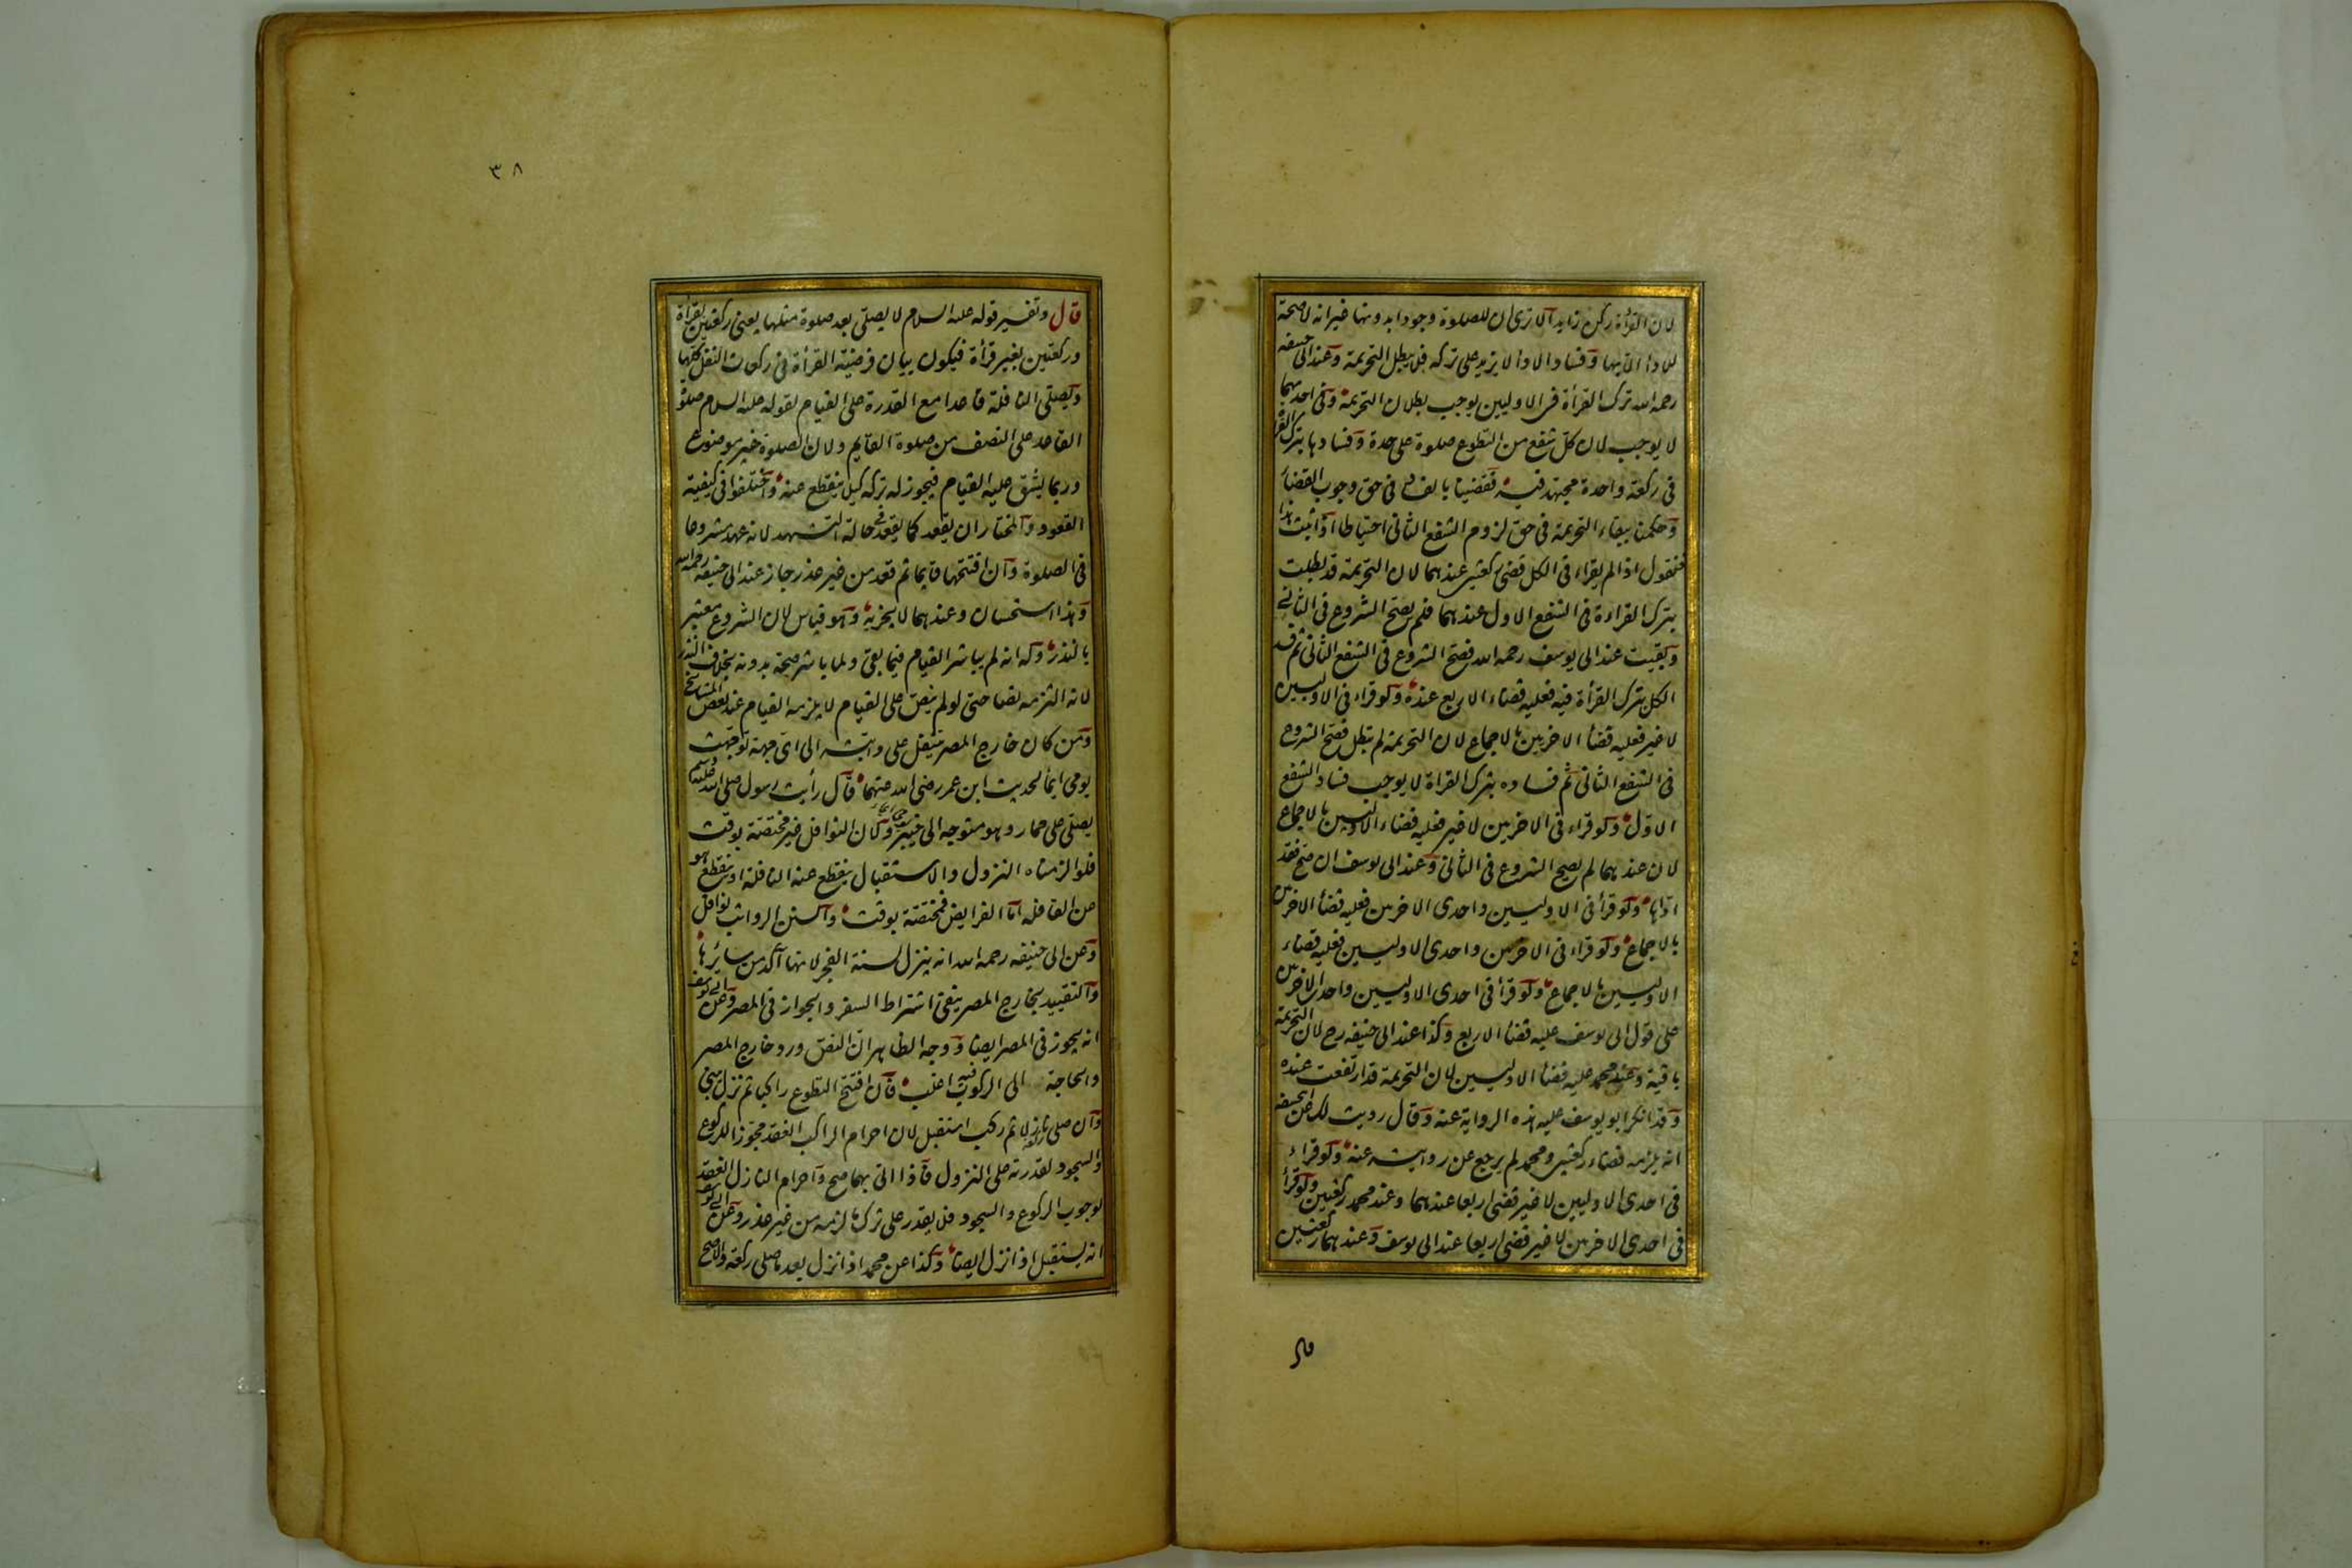 لان القرأة ركن زايد الا ترى ان للصلوة وجودا بدونها غير انه لا صحة
للادا الا بها وفساد الادا لا يزيد على تركه فلا يبطل التحريمة وعند ابى حنيفه
رحمه الله ترك القرأة فى الاوليين يوجب بطلان التحريمة وفى احديهما
لا يوجب لان كل شفع من التطوع صلوة على حدة وفسادها بترك القرأة
فى ركعة واحدة مجتهد فيه فقضينا بالفساد فى حق وجوب القضأ
وحكمنا ببقاء التحريمة فى حق لزوم الشفع الثانى احتياطا اذا ثبت هذا
فنقول اذا لم يقراء فى الكل قضى ركعتين عندهما لان التحريمة قد بطلت
بترك القراءة فى الشفع الاول عندهما فلم يصح الشروع فى الثانى
وبقيت عند ابى يوسف رحمه الله فصح الشروع فى الشفع الثانى ثم فسد
الكل بترك القرأة فيه فعليه قضاء الاربع عنده ولو قراء فى الاوليين
لا غير فعليه قضأ الاخريين بالاجماع لان التحريمة لم تبطل فصح الشروع
فى الشفع الثانى ثم فساده بترك القراة لا يوجب فساد الشفع
الاول ولو قراء فى الاخريين لا غير فعليه قضاء الاوليين بالاجماع
لان عندهما لم يصح الشروع فى الثانى وعند ابى يوسف ان صح فقد
اداها ولو قرأ فى الاوليين واحدى الاخريين فعليه قضأ الاخريين
بالاجماع ولو قراء فى الاخريين واحدى الاوليين فعليه قضاء
الاوليين بالاجماع ولو قرأ فى احدى الاوليين واحدى الاخريين
على قول ابى يوسف عليه قضأ الاربع وكذا عند ابى حنيفه رح لان التحريمة
باقية وعند محمد عليه قضأ الاوليين لان التحريمة قد ارتفعت عنده
وقد انكر ابو يوسف عليه هذه الرواية عنه وقال رويت لك عن ابى حنيفه
انه يلزمه قضاء ركعتين ومحمد لم يرجع عن روايته عنه ولو قراء
فى احدى الاوليين لا غير قضى اربعا عندهما وعند محمد ركعتين ولو قرأ
فى احدى الاخريين لا غير قضى اربعا عند ابى يوسف وعندهما ركعتين
قال
٣٨
قال وتفسير قوله عليه السلام لا يصلى بعد صلوة مثلها يعنى ركعتين بقرأة
وركعتين بغير قرأة فيكون بيان فرضية القرأة فى ركعات النفل كلها
ويصلى النافلة قاعدا مع القدرة على القيام لقوله عليه السلام صلوة
القاعد على النصف من صلوة القايم ولان الصلوة خير موضوع
وربما يشق عليه القيام فيجوز له تركه كيلا ينقطع عنه واختلفوا فى كيفية
القعود والمختار ان يقعد كما يقعد فى حالة التشهد لانه عهد مشروعا
فى الصلوة وان افتتحها قايما ثم قعد من غير عذر جاز عند ابى حنيفه رحمه الله
وهذا استحسان وعندهما لا يجزيه وهو قياس لان الشروع معتبر
بالنذر وله انه لم يباشر القيام فيما بقى ولما باشر صحة بدونه بخلاف النذر
لانه التزمه نصا حتى لو لم ينص على القيام لا يلزمه القيام عند بعض المشايخ
ومن كان خارج المصر تنفل على دابته الى اى جهة توجهت
يومى ايمأ لحديث ابن عمر رضى الله عنهما قال رأيت رسول صلى الله عليه وسلم
يصلى على حمار وهو متوجه الى خيبر ولان النوافل غير مختصة بوقت
فلو الزمناه النزول والاستقبال ينقطع عنه النافلة او ينقطع هو
عن القافله اما الفرايض فمختصة بوقت والسنن الرواتب نوافل
وعن ابى حنيفه رحمه الله انه ينزل لسنة الفجر لانها آكد من سائرها
والتقييد بخارج المصر ينفى اشتراط السفر والجواز فى المصر وعن ابى يوسف
انه يجوز فى المصر ايضا ووجه الظاهر ان النص ورد خارج المصر
والحاجة الى الركوب فيه اغلب فان افتتح التطوع راكبا ثم نزل يبنى
وان صلى ركعة نازلا ثم ركب استقبل لان احرام الراكب انعقد مجوزا للركوع
والسجود لقدرته على النزول فاذا اتى بهما صح واحرام النازل انعقد
لوجوب الركوع والسجود فلا يقدر على ترك ما لزمه من غير عذر وعن ابى يوسف
انه يستقبل اذا نزل ايضا وكذا عن محمد اذا نزل بعد ما صلى ركعة والاصح